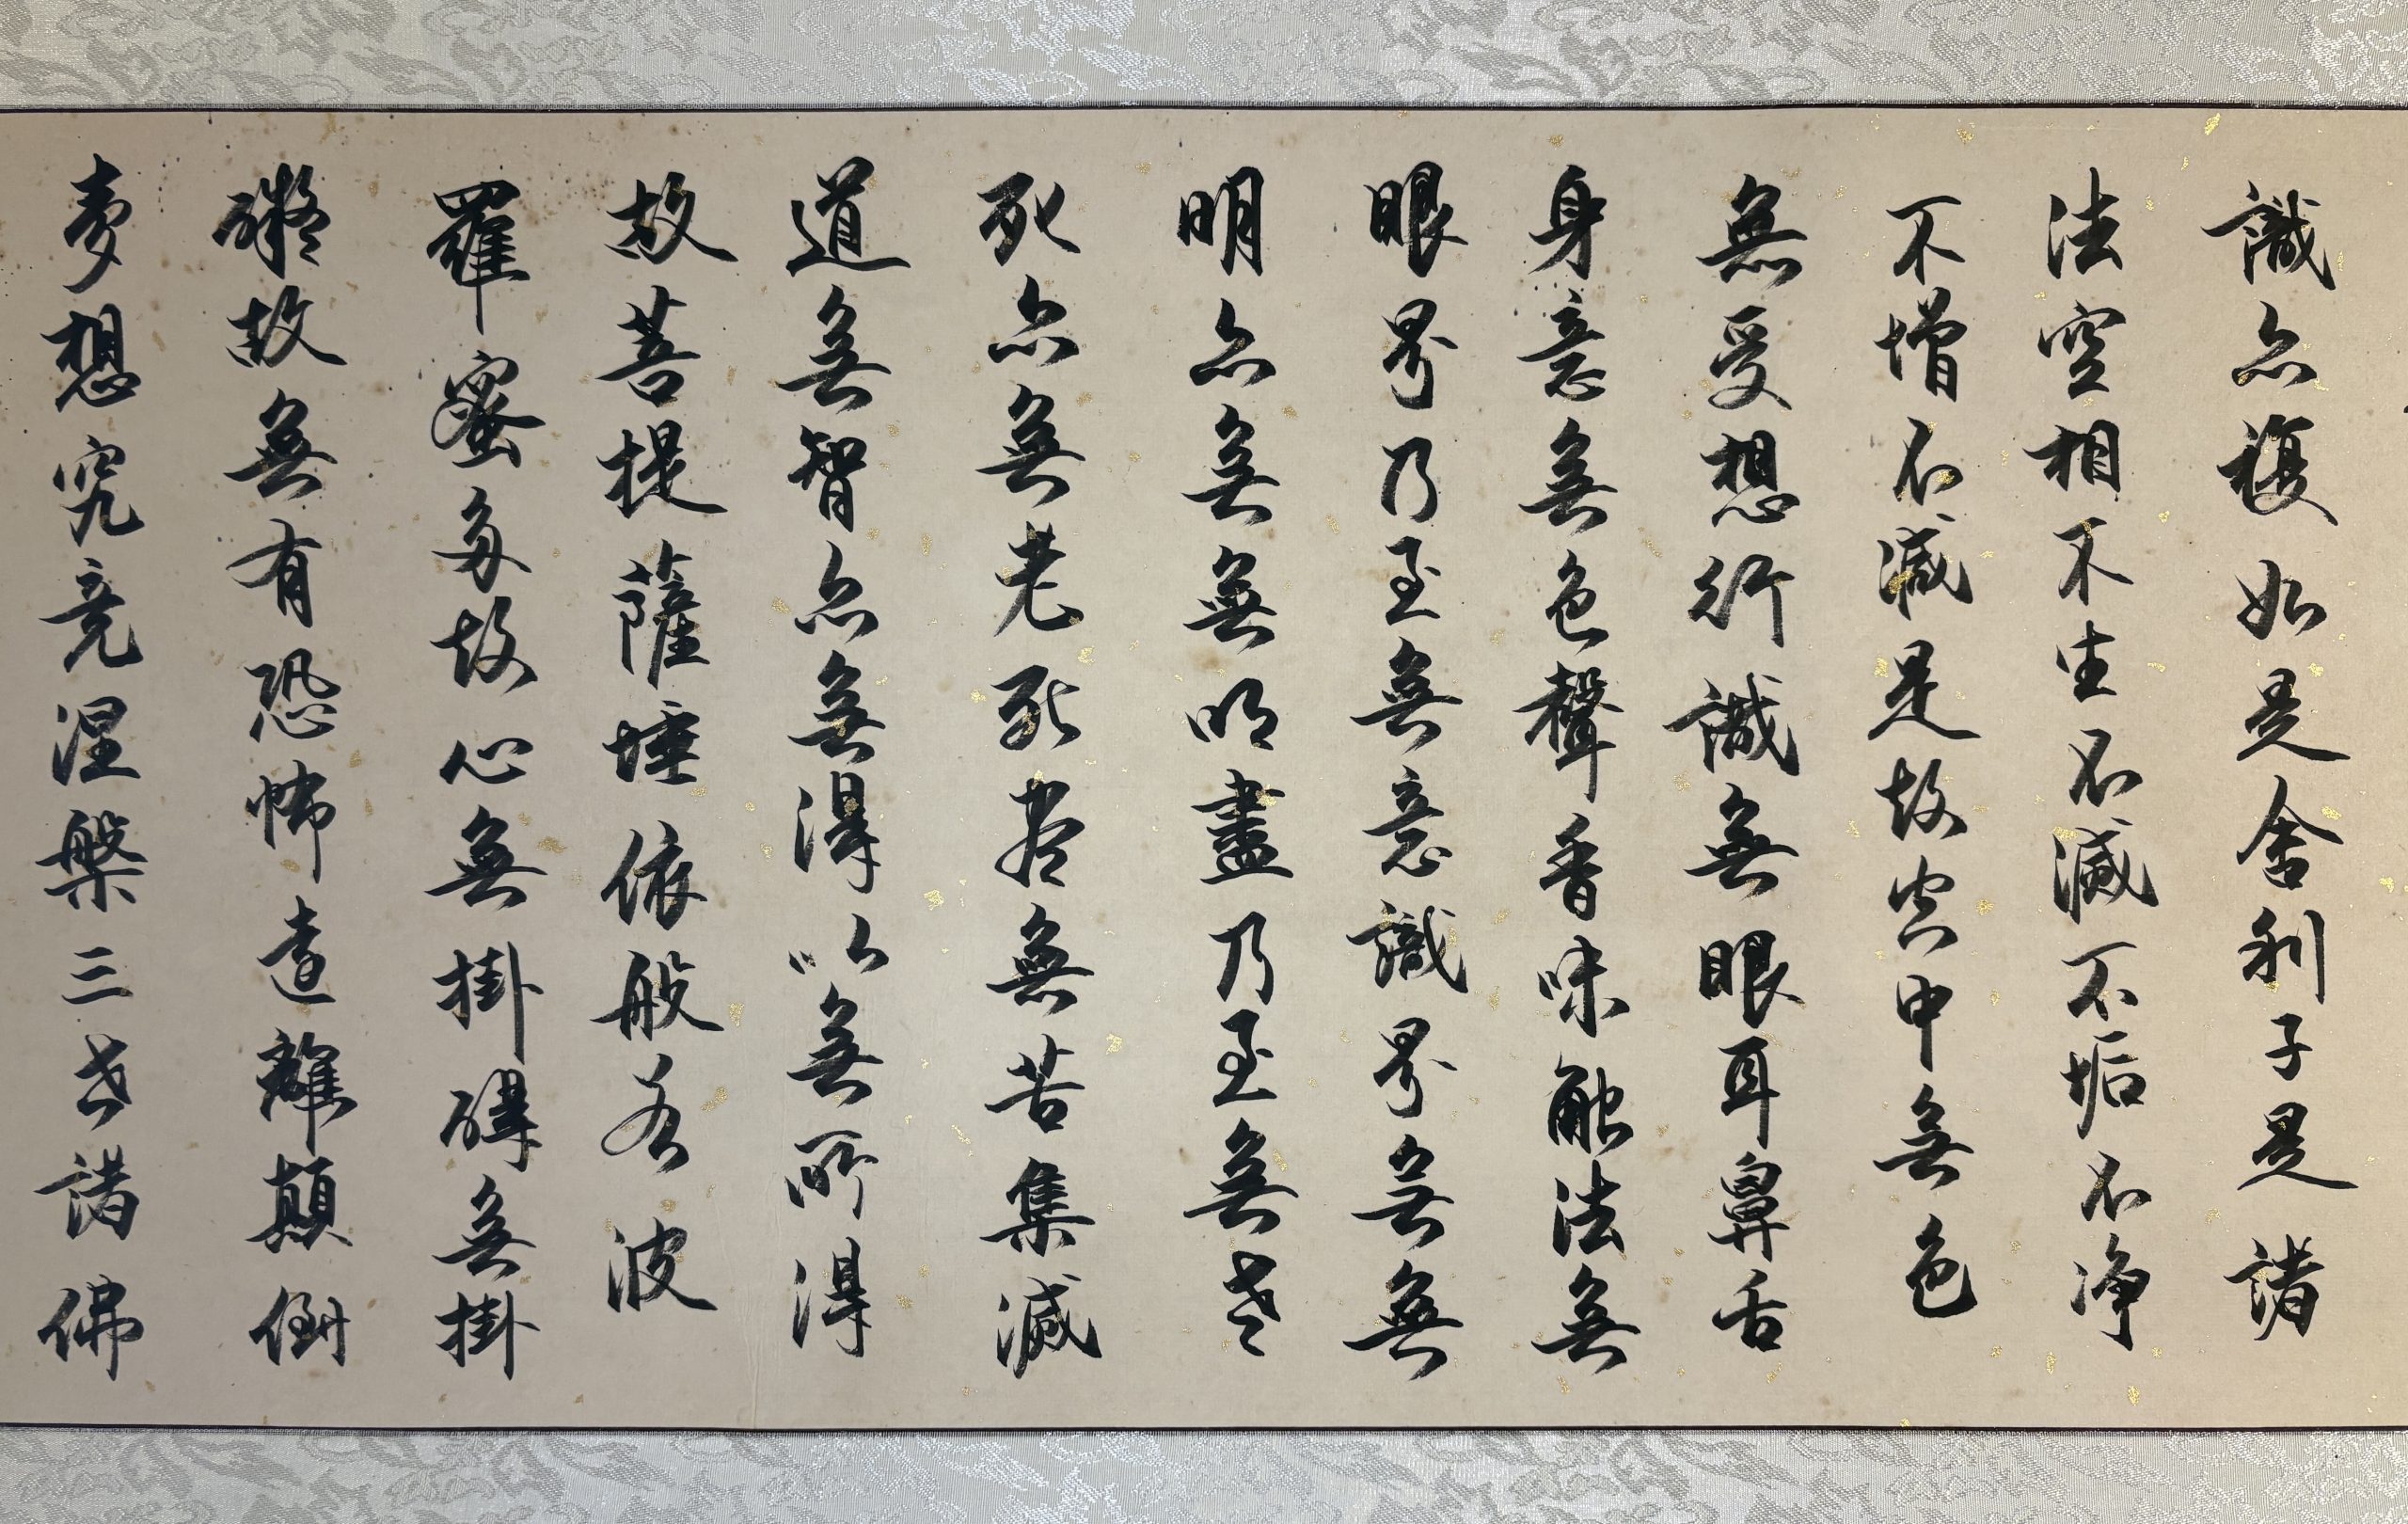 識亦復如是舍利子是諸
法空相不生不滅不垢不淨
不增不減是故空中無色
無受想行識無眼耳鼻舌
身意無色聲香味觸法無
眼界乃至無意識界無無
明亦無無明盡乃至無老
死亦無老死盡無苦集滅
道無智亦無得以無所得
故菩提薩埵依般若波
羅蜜多故心無掛礙無掛
礙故無有恐怖遠離顛倒
夢想究竟涅槃三世諸佛